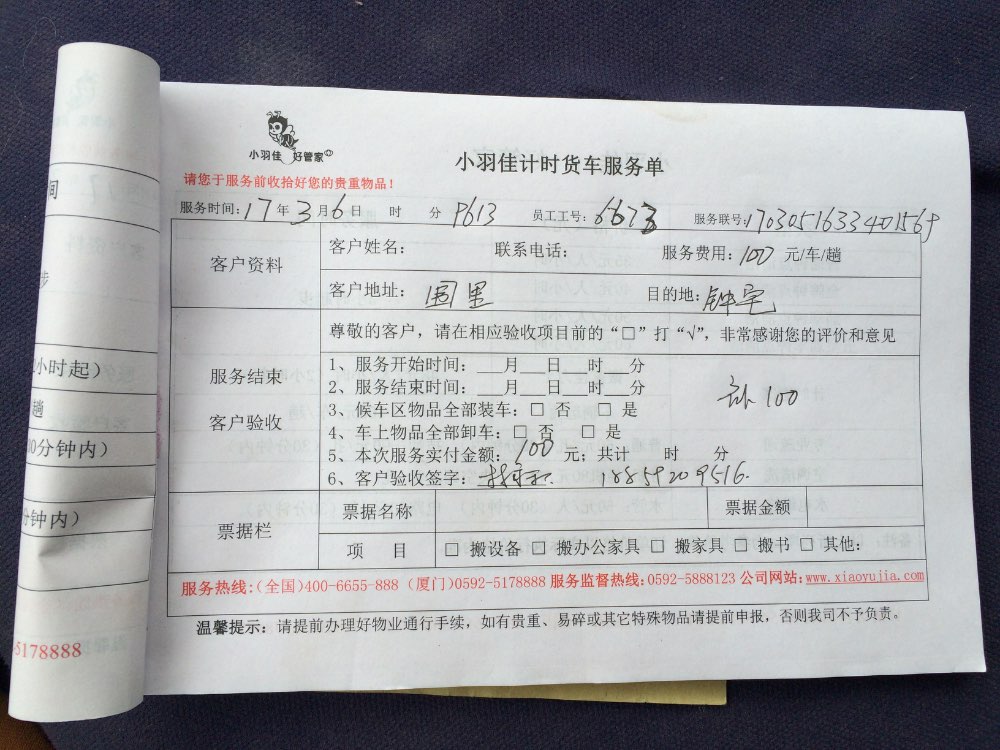 小羽佳 好管家
小羽佳计时货车服务单
请您于服务前收拾好您的贵重物品！
服务时间：17年3月6日 时 分 P613 员工工号： 服务联号：
客户资料
客户姓名： 联系电话： 服务费用：100 元/车/趟
客户地址：围里 目的地：钟宅
服务结束
客户验收
尊敬的客户，请在相应验收项目前的“□”打“√”，非常感谢您的评价和意见
1、服务开始时间：___月___日___时___分
2、服务结束时间：___月___日___时___分
3、候车区物品全部装车：□ 否 □ 是
4、车上物品全部卸车：□ 否 □ 是
5、本次服务实付金额：100 元；共计 时 分
6、客户验收签字： 18859209516.
100
票据栏
票据名称 票据金额
项 目 □ 搬设备 □ 搬办公家具 □ 搬家具 □ 搬书 □ 其他：
服务热线：(全国)400-6655-888 (厦门)0592-5178888 服务监督热线：0592-5888123 公司网站：www.xiaoyujia.com
温馨提示：请提前办理好物业通行手续，如有贵重、易碎或其它特殊物品请提前申报，否则我司不予负责。
间
步
小时起）
趟
30分钟内）
分钟内）
-5178888